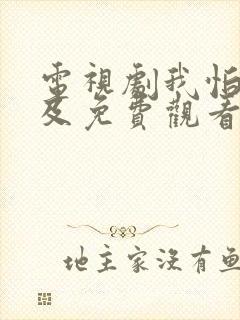 電視劇我怕
及免費觀看
地主家没有鱼